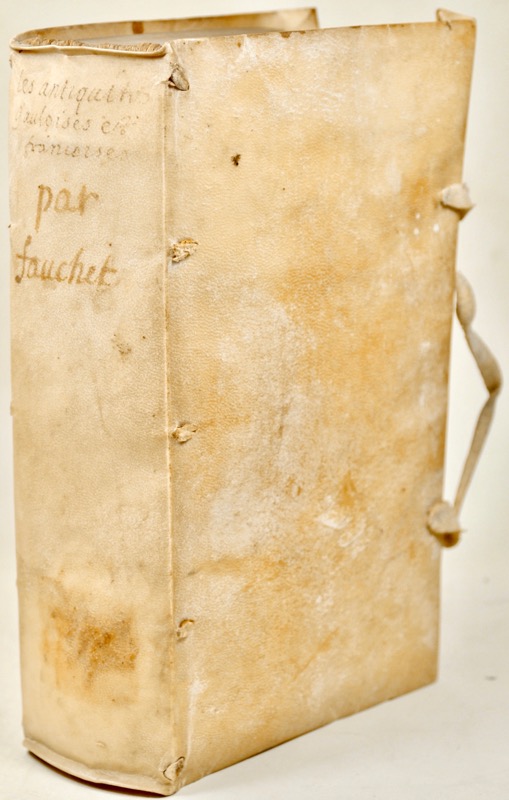 Les antiquites
gauloises et
francoises
par
fauchet